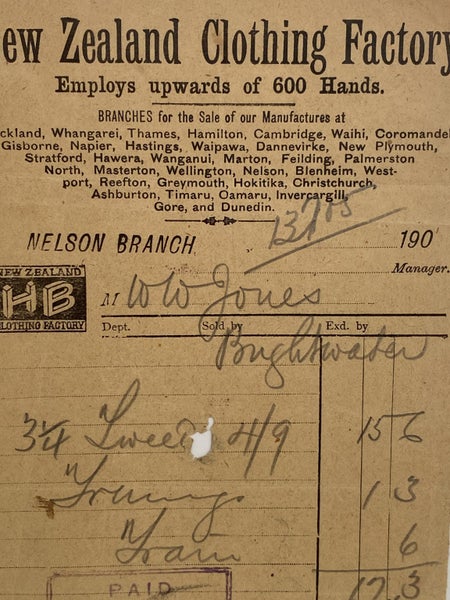 ew Zealand Clothing Factory
Employs upwards of 600 Hands.
BRANCHES for the Sale of our Manufactures at
ckland, Whangarei, Thames, Hamilton, Cambridge, Waihi, Coromandel
Gisborne, Napier, Hastings, Waipawa, Dannevirke, New Plymouth,
Stratford, Hawera, Wanganui, Marton, Feilding, Palmerston
North, Masterton, Wellington, Nelson, Blenheim, West-
port, Reefton, Greymouth, Hokitika, Christchurch,
Ashburton, Timaru, Oamaru, Invercargill,
Gore, and Dunedin.
NELSON BRANCH 190
Manager.
NEW ZEALAND
HB
CLOTHING FACTORY
M W W Jones
Dept. Sold by Exd. by
Brightwater
3¼ Tweed 4/9 15 6
1 3
6
17 3
PAID